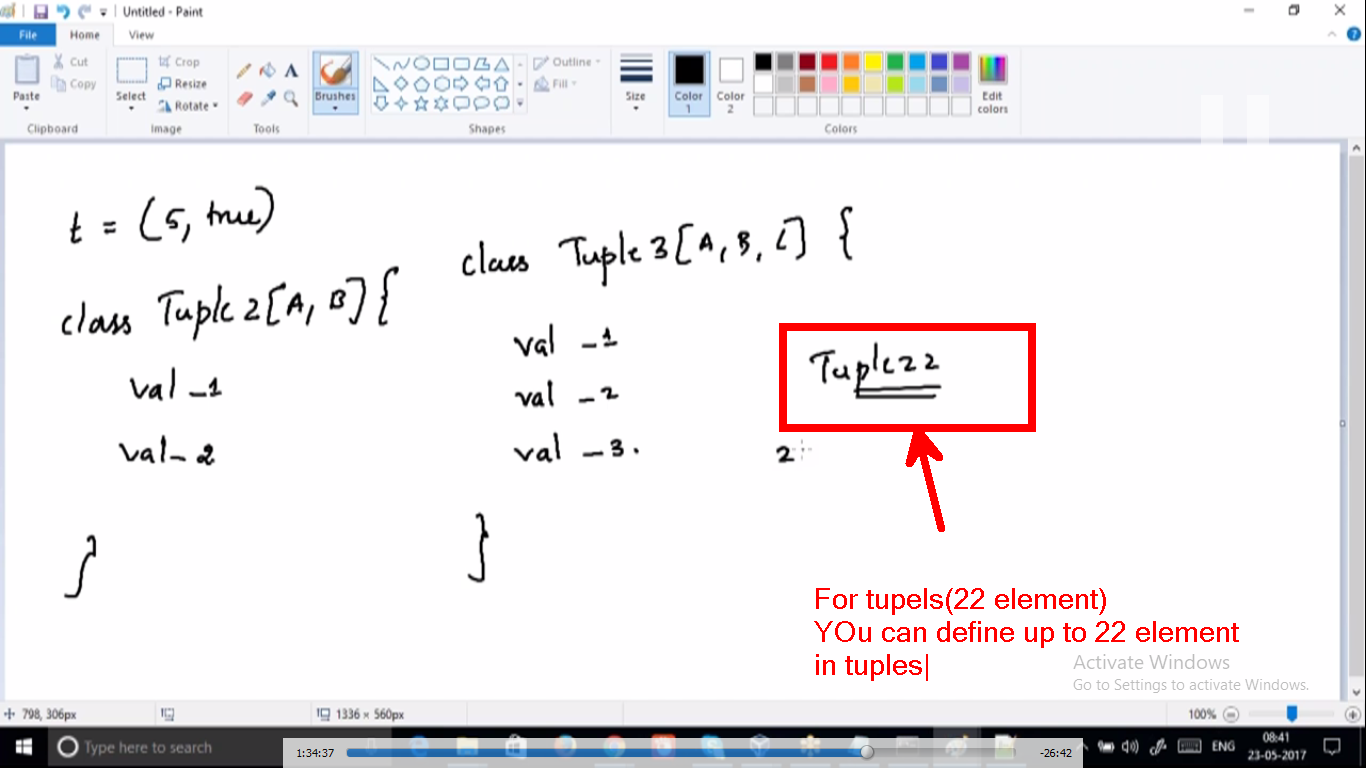 Untitled - Paint
File Home View
Paste
Cut
Copy
Clipboard
Select
Crop
Resize
Rotate
Image
Tools
Brushes
Shapes
Outline
Fill
Size
Color 1
Color 2
Edit colors
Colors
t = (5, true)
class Tuple 2 [A, B] {
val _1
val _ 2
}
class Tuple 3 [A, B, C] {
val _1
val _2
val _3.
}
Tuple22
2
For tupels(22 element)
YOu can define up to 22 element
in tuples|
Activate Windows
Go to Settings to activate Windows.
798, 306px
1336 × 560px
100%
Type here to search
1:34:37
-26:42
ENG
08:41
23-05-2017